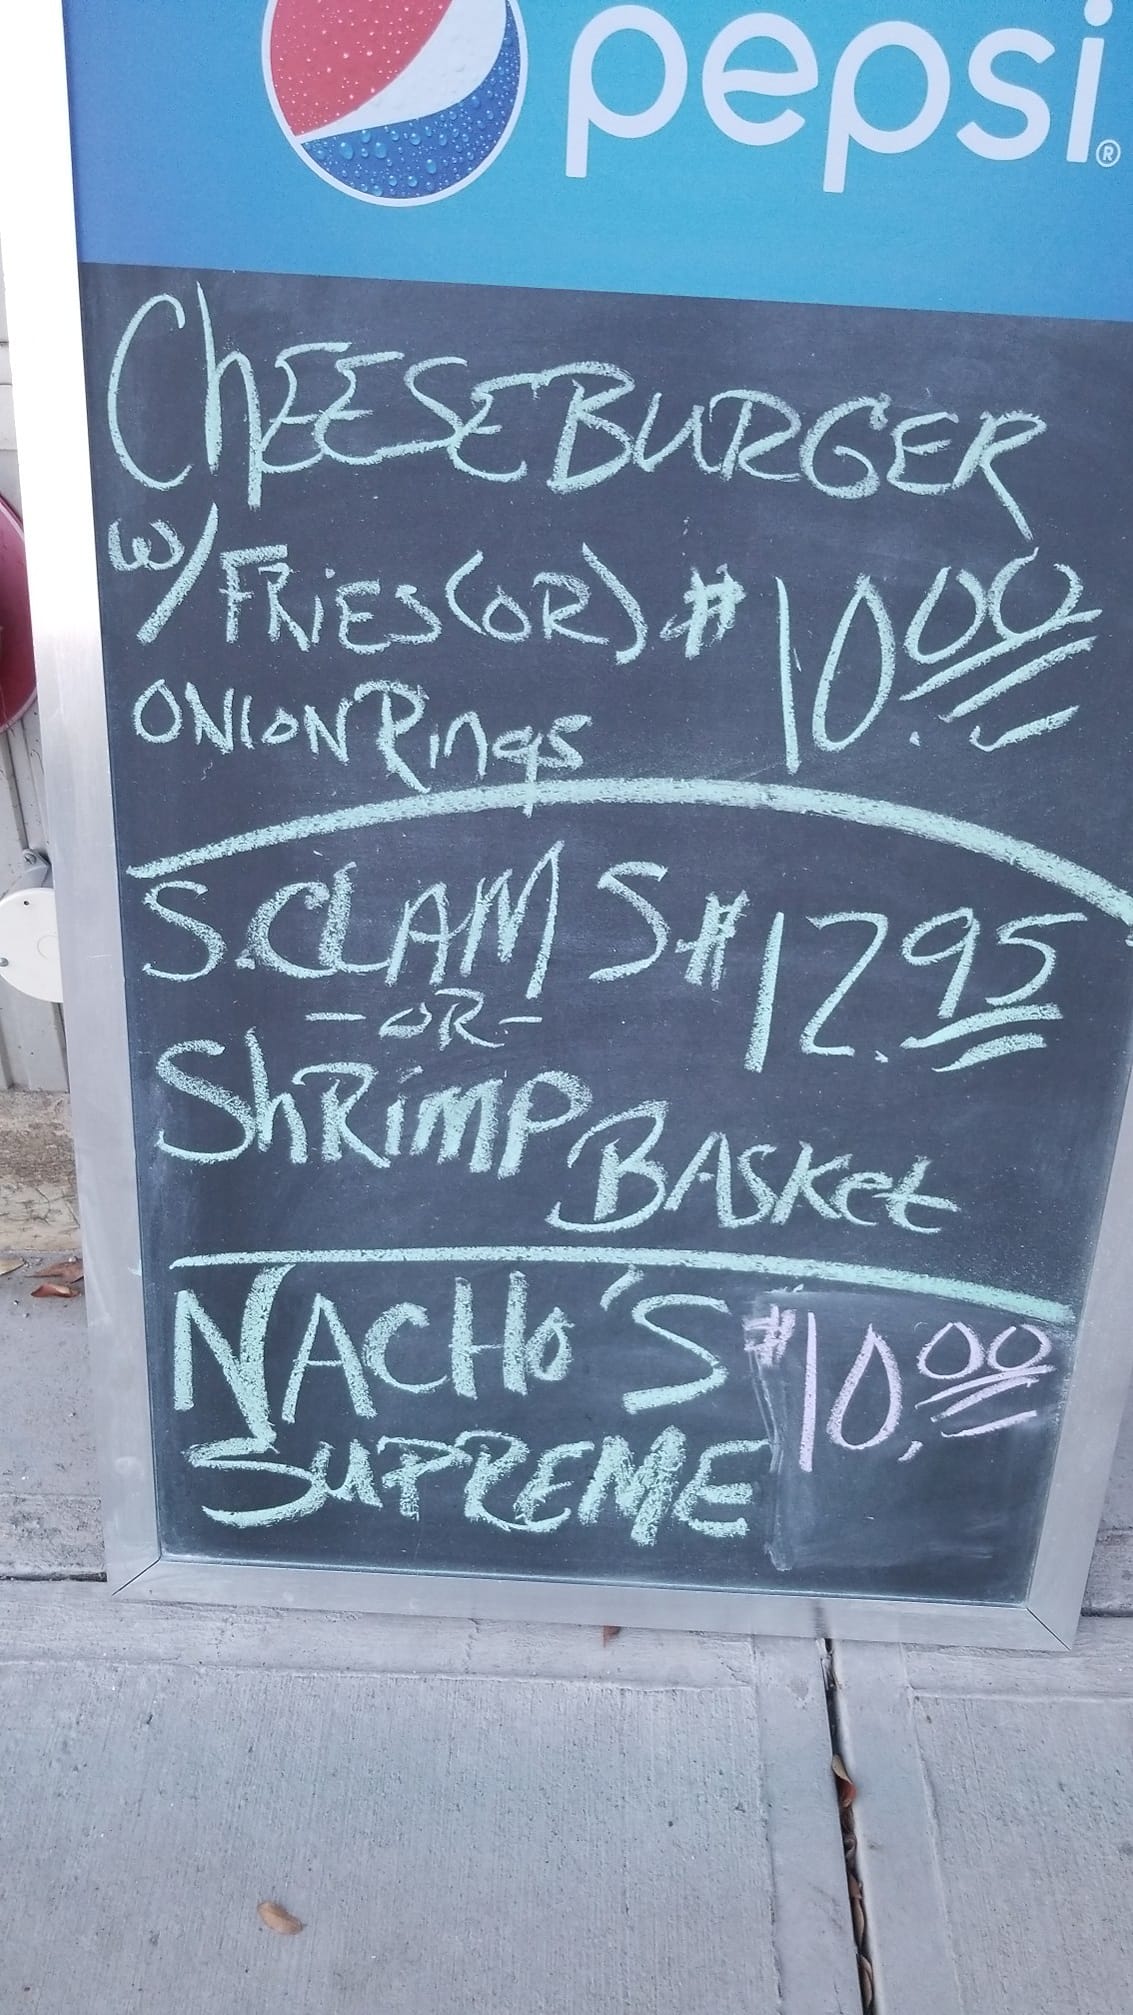 pepsi®
ChEESEBURGER
w/ FRiES (OR) $10.00
ONION Rings
S. CLAMS $12.95
-OR-
ShRimp BASKet
NACHO'S $10.00
SUPREME